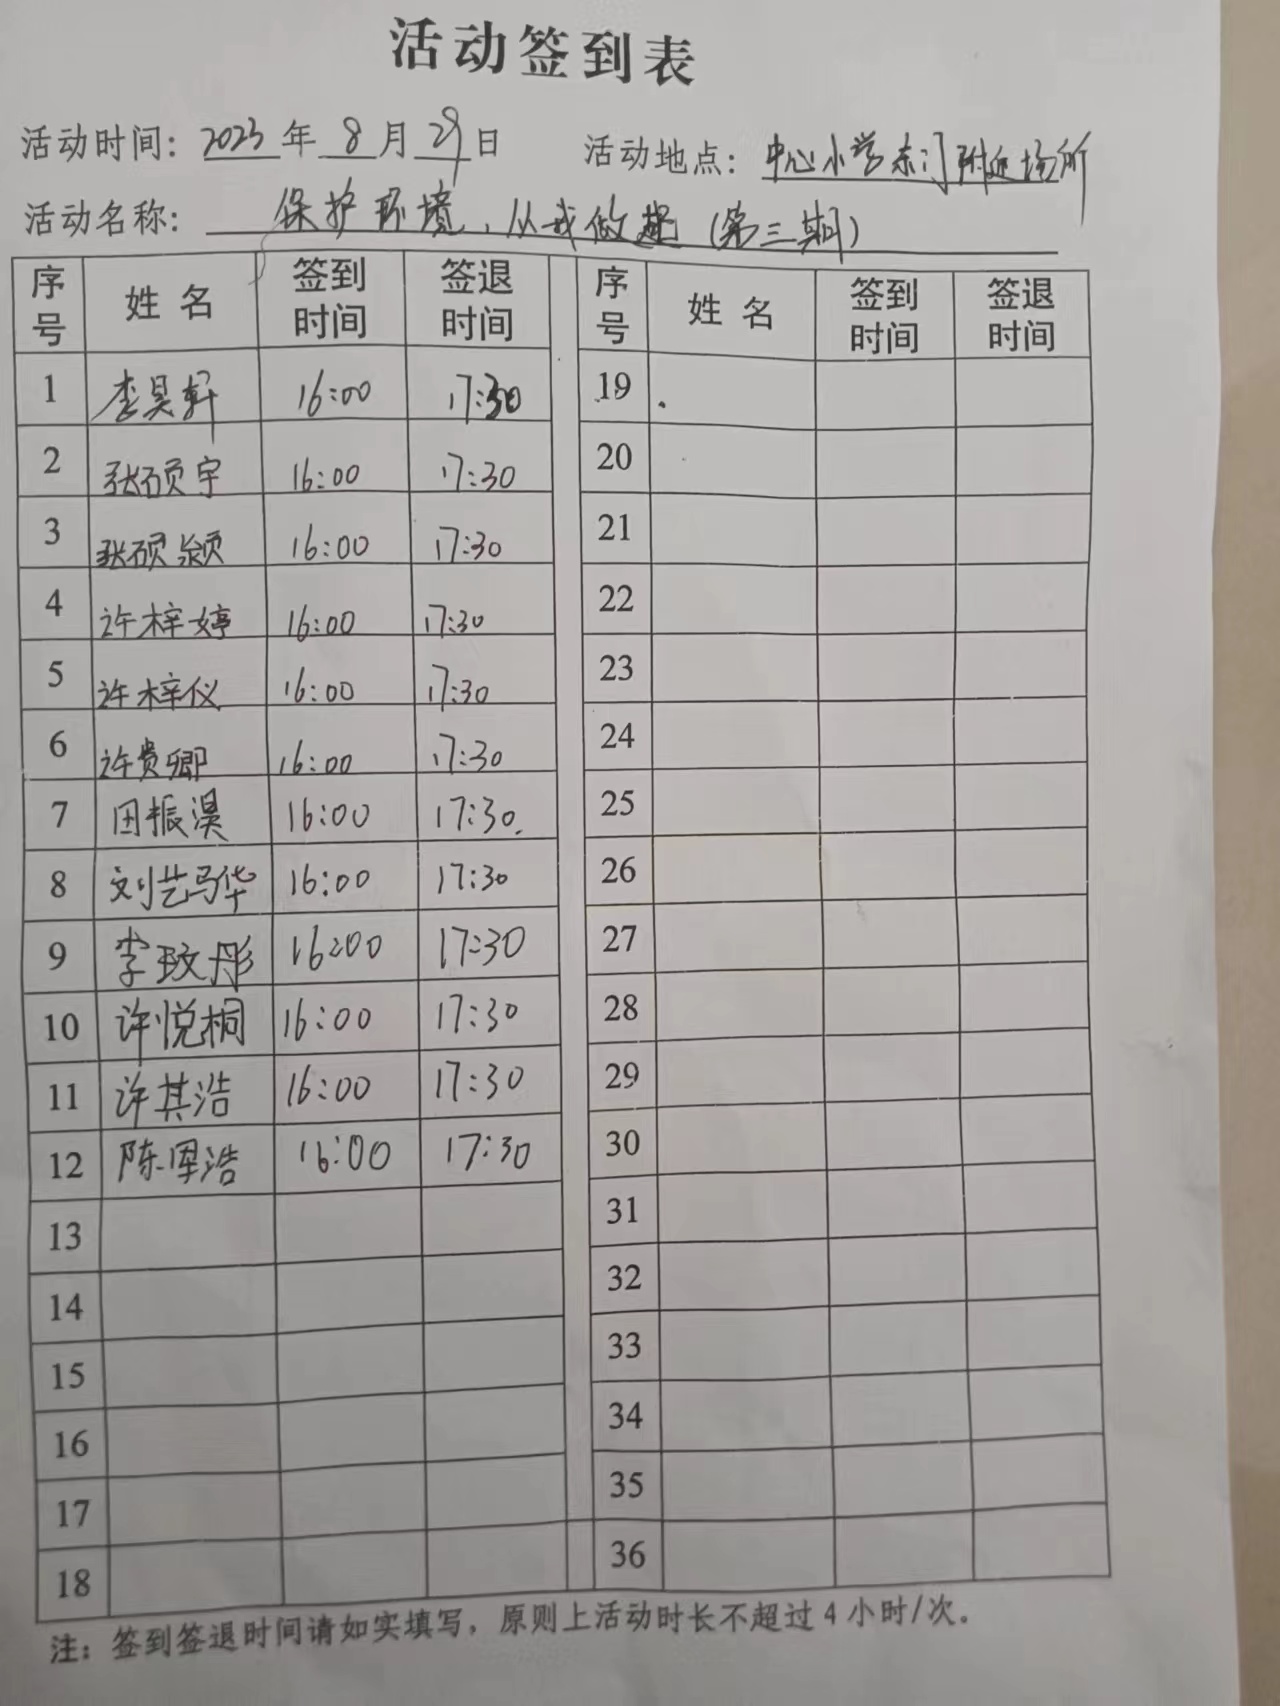 活动签到表
活动时间：2023年8月29日 活动地点：中心小学东门附近场所
活动名称：保护环境，从我做起（第三期）
序号 姓名 签到时间 签退时间 序号 姓名 签到时间 签退时间
1 李昊轩 16:00 17:30 19
2 张硕宇 16:00 17:30 20
3 张硕颖 16:00 17:30 21
4 许梓婷 16:00 17:30 22
5 许梓仪 16:00 17:30 23
6 许贵卿 16:00 17:30 24
7 田振淏 16:00 17:30 25
8 刘艺骅 16:00 17:30 26
9 李玟彤 16:00 17:30 27
10 许悦桐 16:00 17:30 28
11 许其浩 16:00 17:30 29
12 陈军浩 16:00 17:30 30
13 31
14 32
15 33
16 34
17 35
18 36
注：签到签退时间请如实填写，原则上活动时长不超过4小时/次。